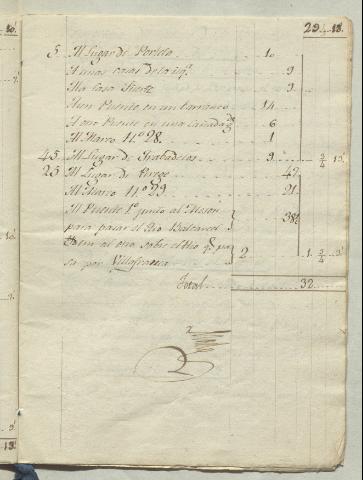 29. 18.
5. Al Lugar de Portela 10
A unas casas de la izqª 9
Ala Casa Fuerte 9
A un Puente en un barranco 14
A otro Puente en una cañada 6
Al Marco nº 28. 1
45. Al Lugar de Trabadelos 9 3/4 13
25 Al Lugar de Perege 47
Al Marco nº 29 21
Al Puente 1º junto al Meson
para pasar el Rio Balcarcel 38½
Idem al otro sobre el Rio q pa
sa por Villafranca 2 1 3/4 3
Total 32